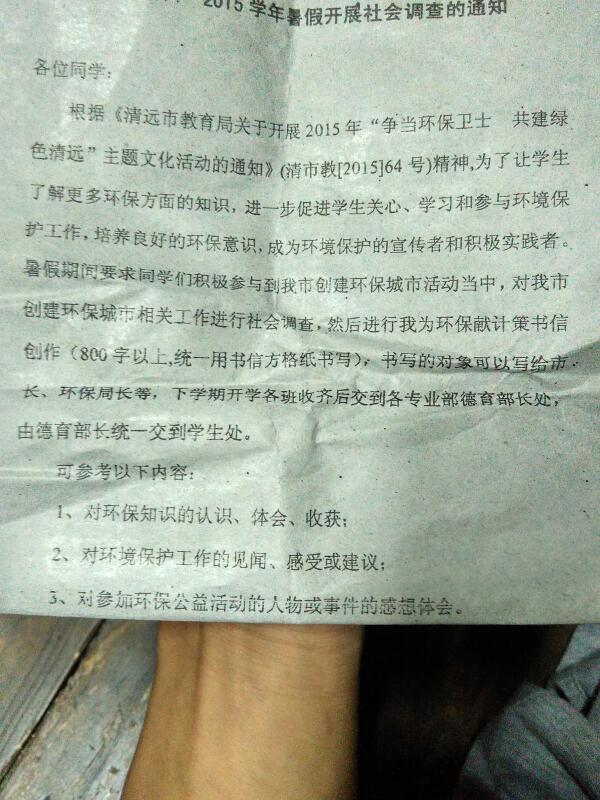 2015 学年暑假开展社会调查的通知
各位同学:
根据《清远市教育局关于开展 2015 年“争当环保卫士 共建绿
色清远”主题文化活动的通知》(清市教[2015]64 号)精神,为了让学生
了解更多环保方面的知识，进一步促进学生关心、学习和参与环境保
护工作，培养良好的环保意识，成为环境保护的宣传者和积极实践者。
暑假期间要求同学们积极参与到我市创建环保城市活动当中，对我市
创建环保城市相关工作进行社会调查，然后进行我为环保献计策书信
创作（800 字以上,统一用书信方格纸书写)，书写的对象可以写给市
长、环保局长等，下学期开学各班收齐后交到各专业部德育部长处，
由德育部长统一交到学生处。
可参考以下内容:
1、对环保知识的认识、体会、收获;
2、对环境保护工作的见闻、感受或建议;
3、对参加环保公益活动的人物或事件的感想体会。